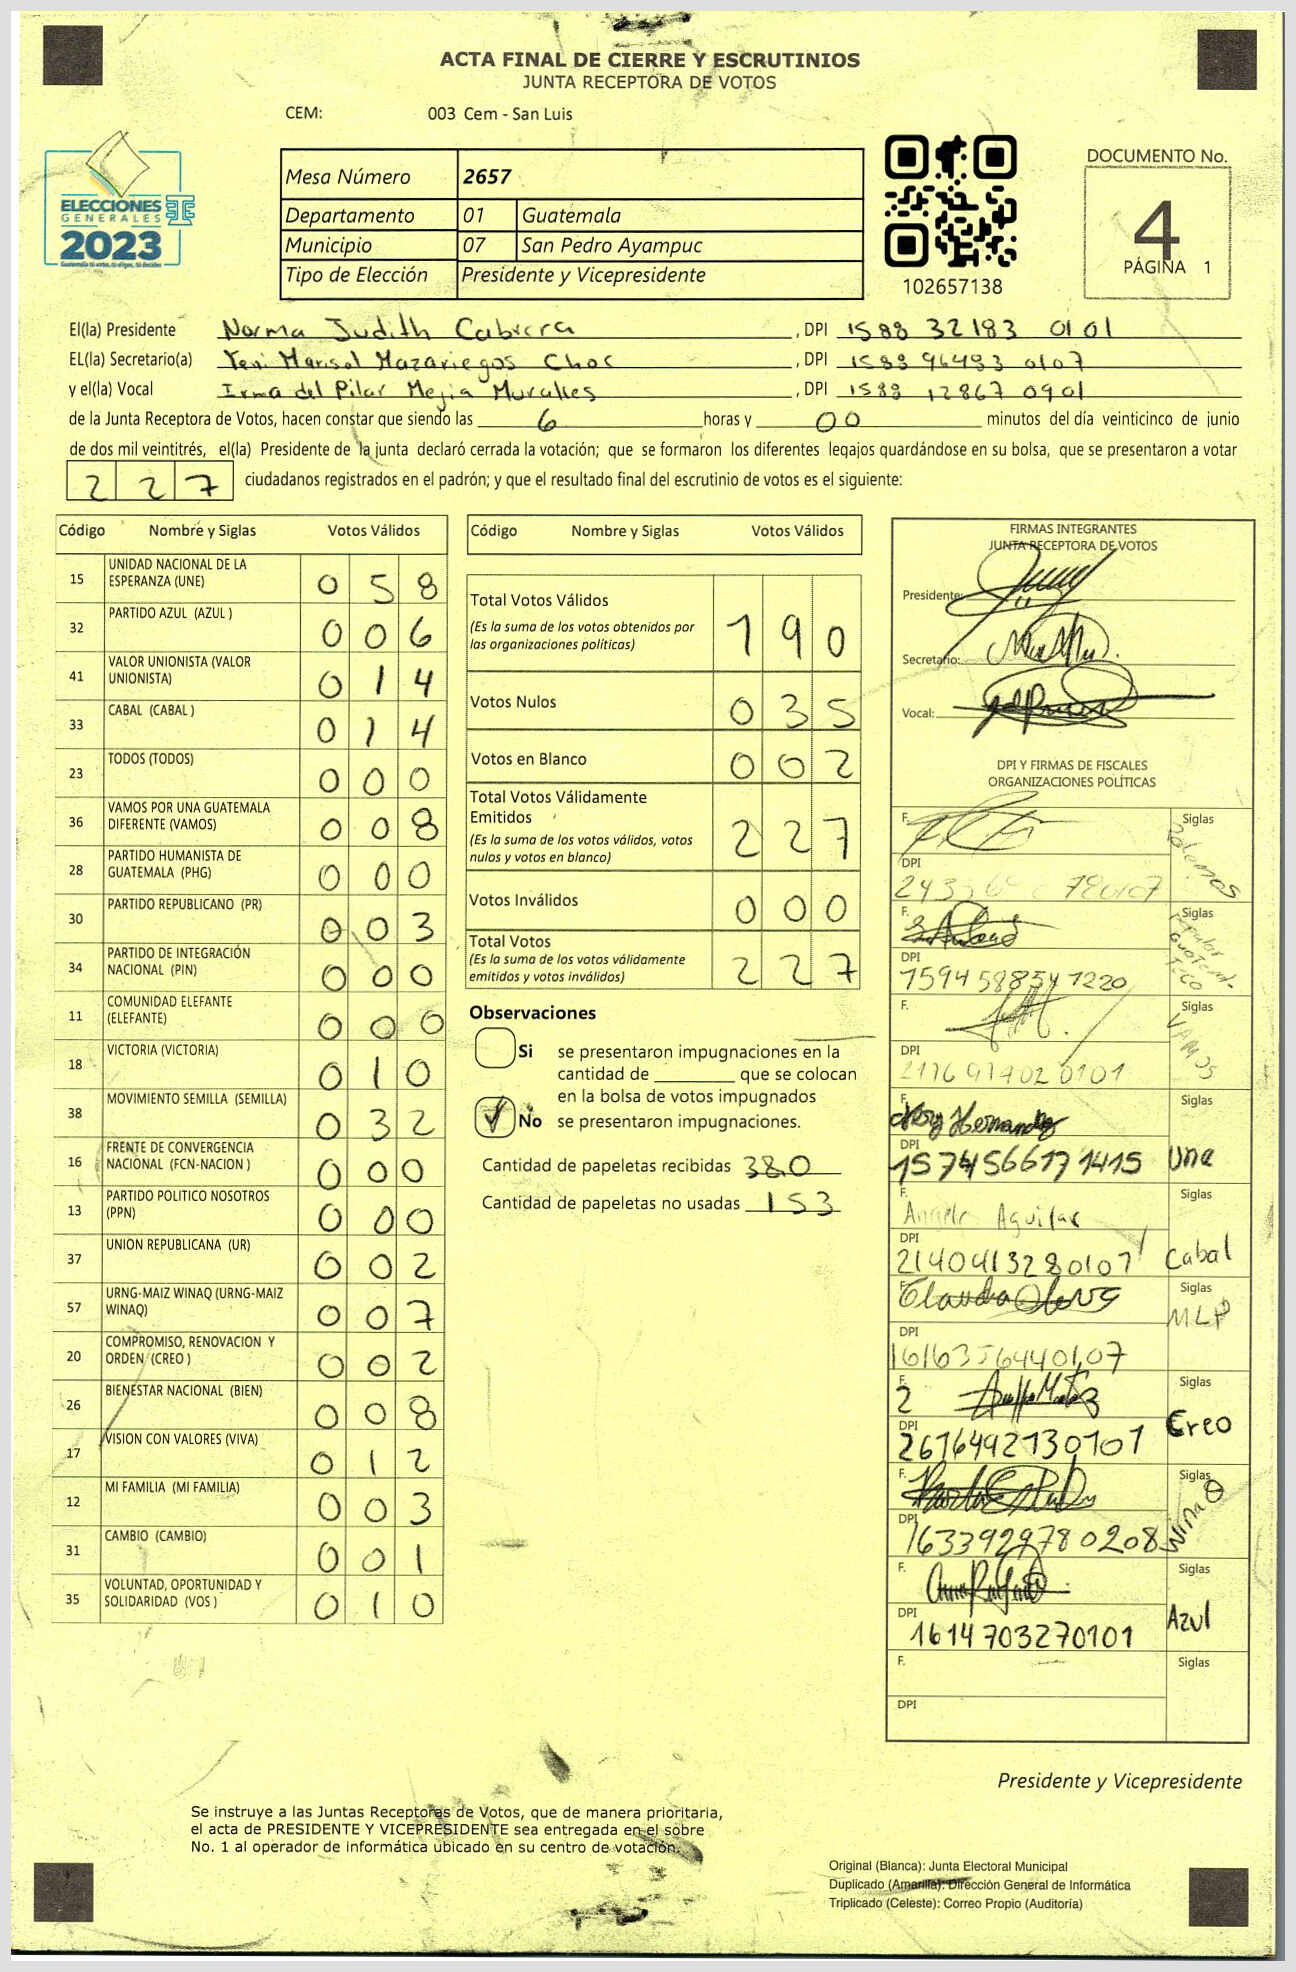 ACTA FINAL DE CIERRE Y ESCRUTINIOS
JUNTA RECEPTORA DE VOTOS
CEM: 003 Cem - San Luis
ELECCIONES
GENERALES
2023
Mesa Número 2657
Departamento 01 Guatemala
Municipio 07 San Pedro Ayampuc
Tipo de Elección Presidente y Vicepresidente
102657138
DOCUMENTO No.
4
PÁGINA 1
El(la) Presidente Norma Judith Cabrera , DPI 1588 32183 0101
EL(la) Secretario(a) Yeni Marisol Mazariegos Choc , DPI 1588 96493 0107
y el(la) Vocal Irma del Pilar Mejia Muralles , DPI 1588 12867 0901
de la Junta Receptora de Votos, hacen constar que siendo las 6 horas y 00 minutos del día veinticinco de junio
de dos mil veintitrés, el(la) Presidente de la junta declaró cerrada la votación; que se formaron los diferentes legajos quardándose en su bolsa, que se presentaron a votar
227 ciudadanos registrados en el padrón; y que el resultado final del escrutinio de votos es el siguiente:
Código Nombre y Siglas Votos Válidos
15 UNIDAD NACIONAL DE LA ESPERANZA (UNE) 058
32 PARTIDO AZUL (AZUL ) 006
41 VALOR UNIONISTA (VALOR UNIONISTA) 014
33 CABAL (CABAL ) 014
23 TODOS (TODOS) 000
36 VAMOS POR UNA GUATEMALA DIFERENTE (VAMOS) 008
28 PARTIDO HUMANISTA DE GUATEMALA (PHG) 000
30 PARTIDO REPUBLICANO (PR) 003
34 PARTIDO DE INTEGRACIÓN NACIONAL (PIN) 000
11 COMUNIDAD ELEFANTE (ELEFANTE) 000
18 VICTORIA (VICTORIA) 010
38 MOVIMIENTO SEMILLA (SEMILLA) 032
16 FRENTE DE CONVERGENCIA NACIONAL (FCN-NACION ) 000
13 PARTIDO POLITICO NOSOTROS (PPN) 000
37 UNION REPUBLICANA (UR) 002
57 URNG-MAIZ WINAQ (URNG-MAIZ WINAQ) 007
20 COMPROMISO, RENOVACION Y ORDEN (CREO ) 002
26 BIENESTAR NACIONAL (BIEN) 008
17 VISION CON VALORES (VIVA) 012
12 MI FAMILIA (MI FAMILIA) 003
31 CAMBIO (CAMBIO) 001
35 VOLUNTAD, OPORTUNIDAD Y SOLIDARIDAD (VOS ) 010
Código Nombre y Siglas Votos Válidos
Total Votos Válidos 190
(Es la suma de los votos obtenidos por
las organizaciones políticas)
Votos Nulos 035
Votos en Blanco 002
Total Votos Válidamente
Emitidos 227
(Es la suma de los votos válidos, votos
nulos y votos en blanco)
Votos Inválidos 000
Total Votos 227
(Es la suma de los votos válidamente
emitidos y votos inválidos)
Observaciones
Si se presentaron impugnaciones en la
cantidad de que se colocan
en la bolsa de votos impugnados
No se presentaron impugnaciones.
Cantidad de papeletas recibidas 380
Cantidad de papeletas no usadas 153
FIRMAS INTEGRANTES
JUNTA RECEPTORA DE VOTOS
Presidente:
Secretario:
Vocal:
DPI Y FIRMAS DE FISCALES
ORGANIZACIONES POLÍTICAS
F. Siglas Podemos
DPI
F. Siglas
DPI 1594 58854 1220
F. Siglas VAMOS
DPI
F. Nory Hernandez Siglas Une
DPI 1574566171415
F. Angele Aguilar Siglas Cabal
DPI 2140413280107
F. Claudia Siglas MLP
DPI 1616356440107
F. Siglas Creo
DPI 2616492130101
F. Siglas WinaQ
DPI 1633929780208
F. Siglas Azul
DPI 1614703270101
F. Siglas
DPI
Presidente y Vicepresidente
Se instruye a las Juntas Receptoras de Votos, que de manera prioritaria,
el acta de PRESIDENTE Y VICEPRESIDENTE sea entregada en el sobre
No. 1 al operador de informática ubicado en su centro de votación.
Original (Blanca): Junta Electoral Municipal
Duplicado (Amarilla): Dirección General de Informática
Triplicado (Celeste): Correo Propio (Auditoría)